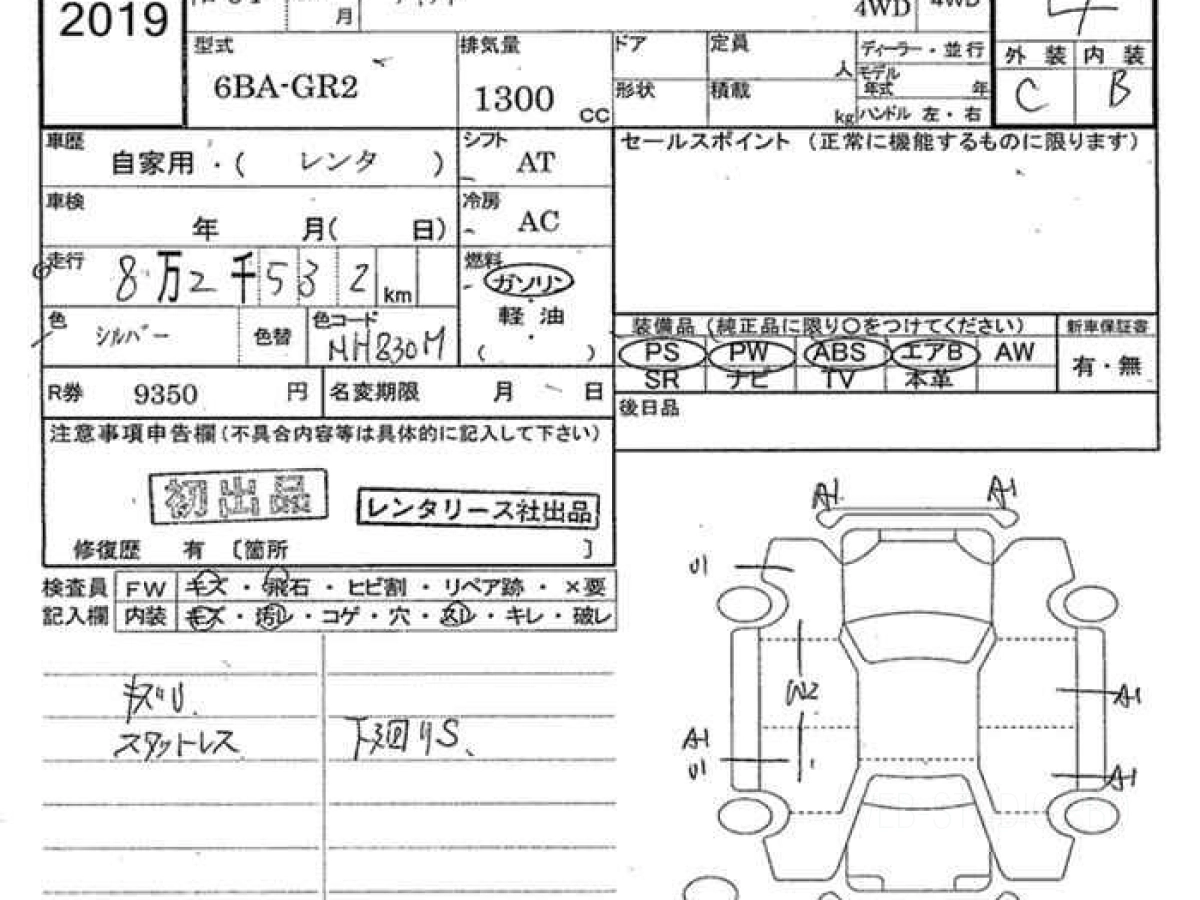 2019
月
4WD
4WD
型式
6BA-GR2
排気量
1300 CC
ドア
定員 人
ディーラー・並行
モデル年式 年
形状
積載 kg
ハンドル 左・右
外装 内装
C B
車歴
自家用・( レンタ )
シフト
AT
セールスポイント (正常に機能するものに限ります)
車検
年 月( 日)
冷房
AC
走行
8万2千532km
燃料
ガソリン
軽 油
( ・ )
色
シルバー
色替
色コード
NH830M
装備品 (純正品に限り○をつけてください)
新車保証書
PS PW ABS エアB AW
有・無
SR ナビ TV 本革
R券 9350 円
名変期限 月 日
後日品
注意事項申告欄(不具合内容等は具体的に記入して下さい)
初出品
レンタリース社出品
修復歴 有 〔箇所 〕
検査員 FW キズ・飛石・ヒビ割・リペア跡・×要
記入欄 内装 キズ・汚レ・コゲ・穴・スレ・キレ・破レ
キズU.
スタットレス
下廻りS、
A1
A1
U1
W2
A1
A1
U1
A1